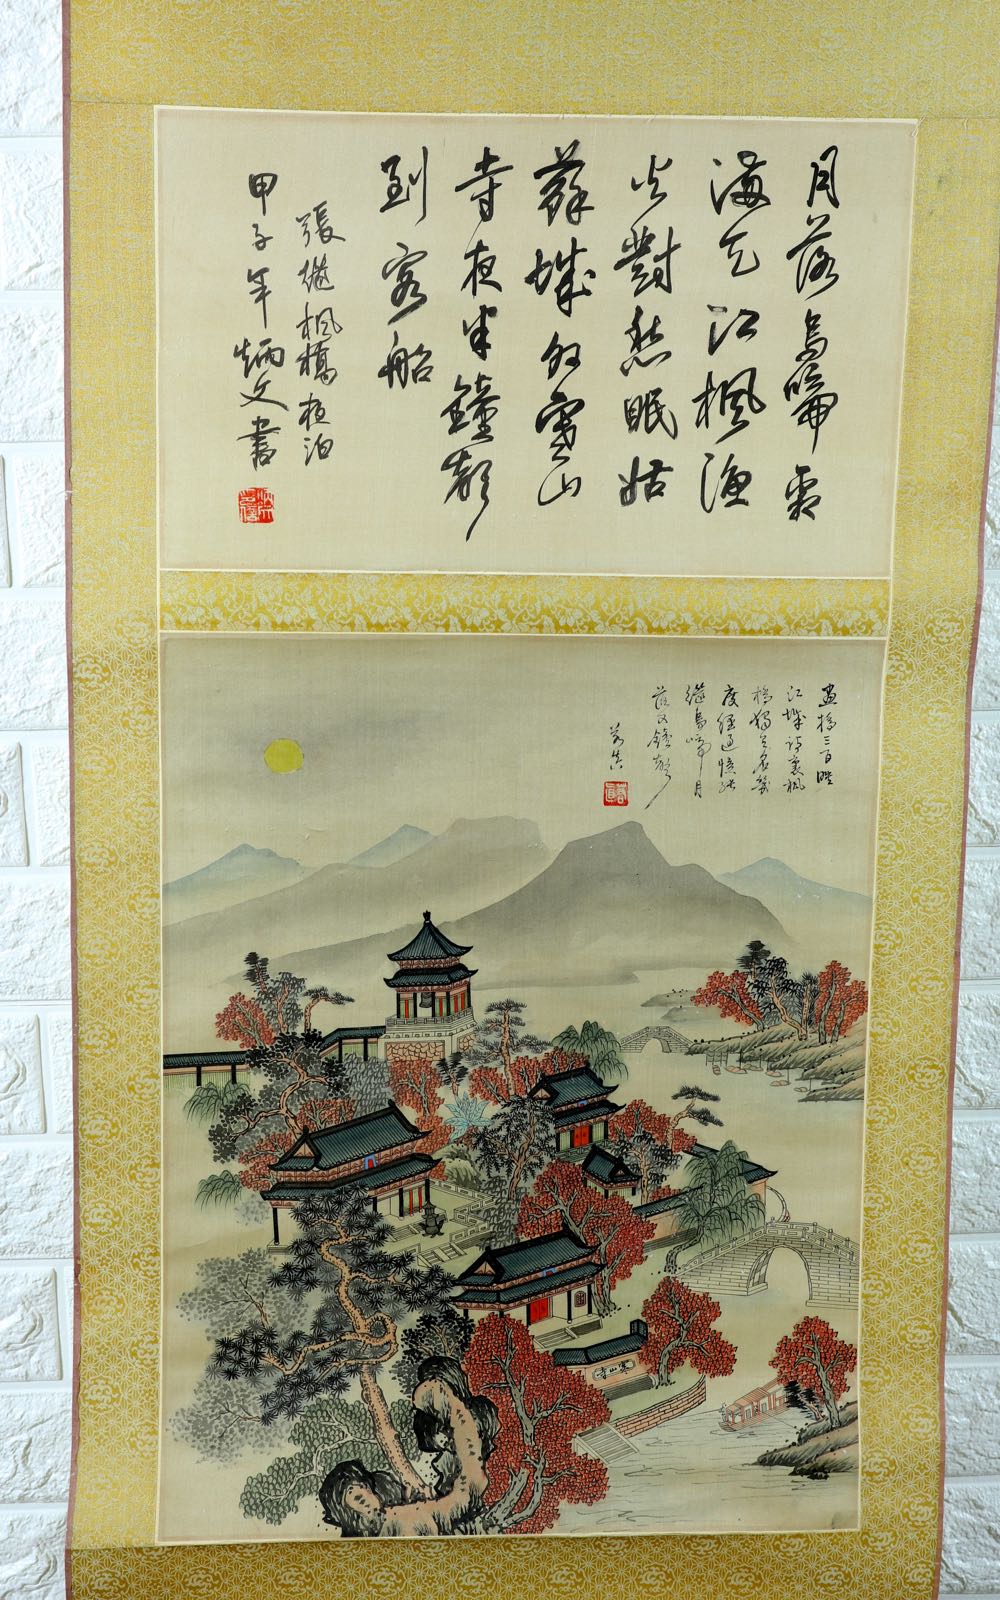 月落烏啼霜
滿天江楓漁
火對愁眠姑
蘇城外寒山
寺夜半鐘聲
到客船
張继楓橋夜泊
甲子年炳文書
畫橋三百暎
江城詩裏楓
橋獨有名幾
度經過憶張
繼烏啼月
落又鐘聲
若真
寒山寺